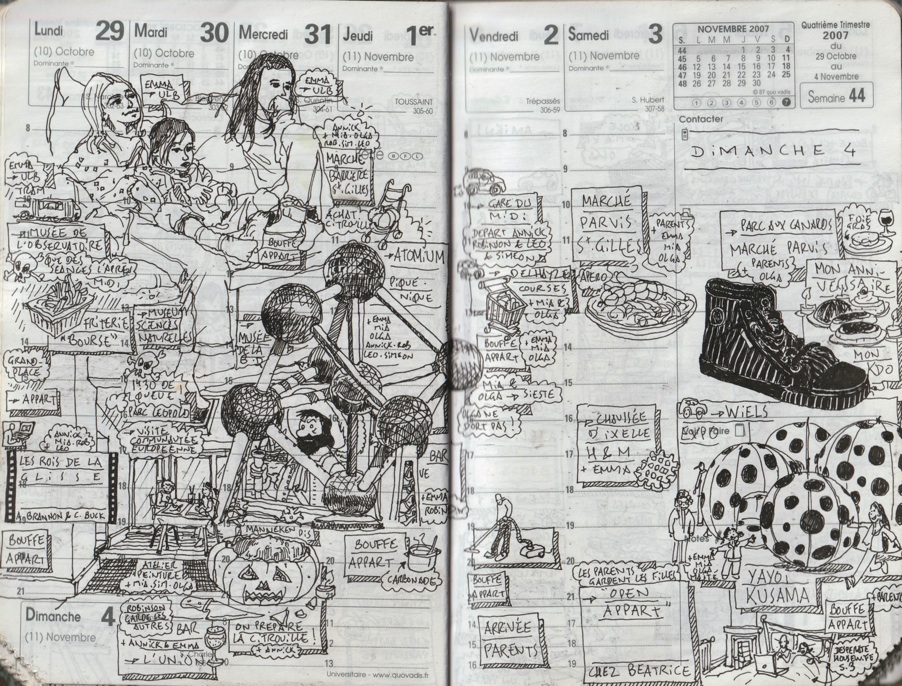 Lundi 29
(10) Octobre
Dominante
Mardi 30
(10) Octobre
Dominante
Mercredi 31
(10) Octobre
Dominante
Jeudi 1er.
(11) Novembre
Dominante
TOUSSAINT
305-60
EMMA
→ ULB
TRAM
→ MUSÉE DE
L'OBSERVATOIRE
QUE DES
SÉANCES L'APRÈS
M.D.
FRITERIE
"BOURSE"
GRAND-
PLACE
→ APPART
ANNICK
+ MIA. ROB.
LEO
LES ROIS DE LA
GLISSE
A. BRANNON & C. BUCK
BOUFFE
APPART
EMMA
→ ULB
→ MUSEUM
SCIENCES
NATURELLES
1H30 DE
QUEUE
PARC LEOPOLD
VISITE
COMMUNAUTÉE
EUROPÉENNE
ATELIER
PEINTURE
+ MIA. SIM. OLG
EMMA
→ ULB
BOUFFE
APPART
MUSÉE
DE LA
MANNEKEN
PIS
ON PREPARE
LA CITROUILLE !
+ ANNICK
ANNICK
+ MIA. OLGA
ROB. SIM. LEO
MARCHÉ
St GILLES
ACHAT
CITROUILLE
→ ATOMIUM
PIQUE-
NIQUE
+ EMMA
MIA
OLGA
ANNICK. ROB
LEO. SIMEON
BAR
+ EMMA
ROBIN
BOUFFE
APPART
CARBONADE
Dimanche 4
(11) Novembre
ROBINSON
GARDE LES
AUTRES
BAR
+ ANNICK & EMMA
→ L'UNION
Universitaire - www.quovadis.fr
Vendredi 2
(11) Novembre
Dominante
Trépassés
306-59
→ GARE DU
MIDI
DEPART ANNICK
ROBINSON & LEO
& SIMEON
→ DELHAIZE
COURSES
+ MIA &
OLGA
BOUFFE
APPART
+ EMMA
MIA
OLGA
MIA &
OLGA → SIESTE
DORT PAS !
BOUFFE
APPART
ARRIVÉE
PARENTS
Samedi 3
(11) Novembre
Dominante
S. Hubert
307-58
MARCHÉ
PARVIS
St GILLES
+ PARENTS
EMMA
MIA
OLGA
APERO
→ CHAUSSÉE
D'IXELLE
H & M
+ EMMA
LES PARENTS
GARDENT LES FILLES
→ "OPEN
APPART"
CHEZ BEATRICE
NOVEMBRE 2007
S. L M M J V S D
44 1 2 3 4
45 5 6 7 8 9 10 11
46 12 13 14 15 16 17 18
47 19 20 21 22 23 24 25
48 26 27 28 29 30
Quatrième Trimestre
2007
du
29 Octobre
au
4 Novembre
Semaine 44
Contacter
DIMANCHE 4
→ PARC AUX CANARDS
MARCHÉ PARVIS
+ PARENTS
OLGA
FOIE
GRAS
MON ANNI-
VERSAIRE
MON
KDO
→ WIELS
Notes
YAYOI
KUSAMA
BOUFFE
APPART
DESPERATE
HOUSEWIFE
S.3